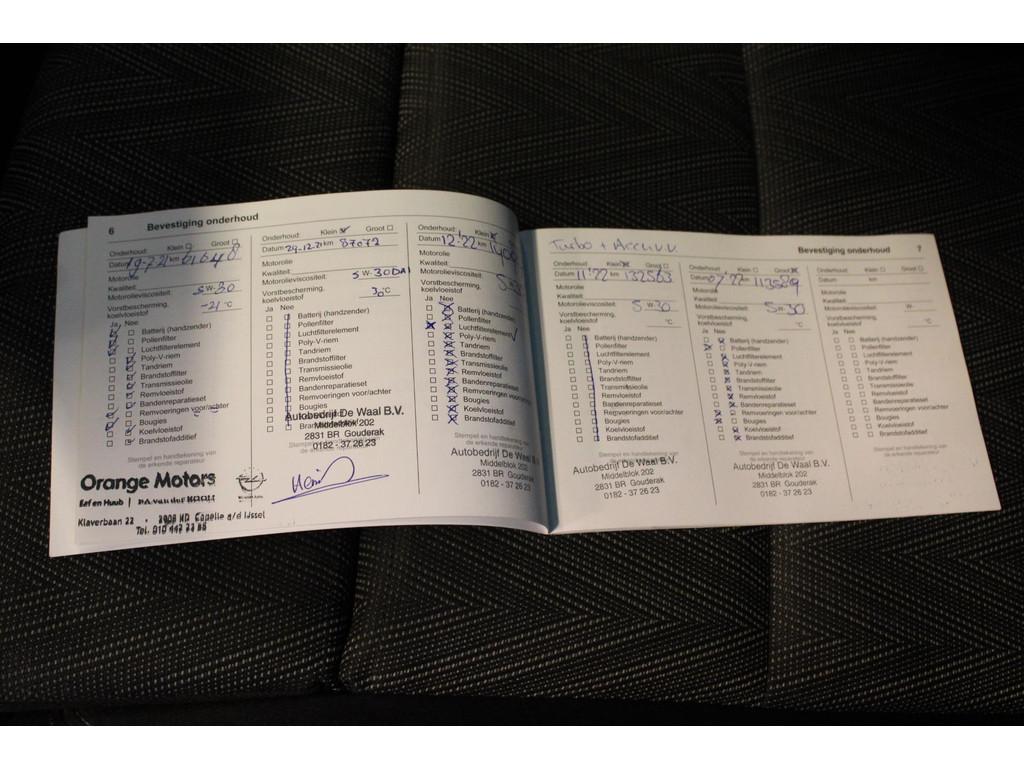 6 Bevestiging onderhoud
Onderhoud: Klein Groot
Datum km 61648
Motorolie
Kwaliteit
Motorolieviscositeit: 5 W-30
Vorstbescherming, koelvloeistof -21 °C
Ja Nee
Batterij (handzender)
Pollenfilter
Luchtfilterelement
Poly-V-riem
Tandriem
Brandstoffilter
Transmissieolie
Remvloeistof
Bandenreparatieset
Remvoeringen voor/achter
Bougies
Koelvloeistof
Brandstofadditief
Stempel en handtekening van
de erkende reparateur
Orange Motors
Klaverbaan 22 - 2908 KD Capelle a/d IJssel
Onderhoud: Klein Groot
Datum 29-12-21 km 87072
Motorolie
Kwaliteit
Motorolieviscositeit: 5 W-30
Vorstbescherming, koelvloeistof °C
Ja Nee
Batterij (handzender)
Pollenfilter
Luchtfilterelement
Poly-V-riem
Tandriem
Brandstoffilter
Transmissieolie
Remvloeistof
Bandenreparatieset
Bougies
Autobedrijf De Waal B.V.
Middelblok 202
2831 BR Gouderak
0182 - 37 26 23
Onderhoud: Klein
Datum 12-22 km
Motorolie
Kwaliteit:
Motorolieviscositeit:
Vorstbescherming, koelvloeistof
Ja Nee
Batterij (handzender)
Pollenfilter
Luchtfilterelement
Poly-V-riem
Tandriem
Brandstoffilter
Transmissieolie
Remvloeistof
Bandenreparatieset
Remvoeringen voor/achter
Bougies
Koelvloeistof
Brandstofadditief
Stempel en handtekening van
de erkende reparateur
Autobedrijf De Waal B.V.
Middelblok 202
2831 BR Gouderak
0182 - 37 26 23
Turbo +
Bevestiging onderhoud 7
Onderhoud: Klein Groot
Datum 11'22 km 132563
Motorolie
Kwaliteit:
Motorolieviscositeit: 5 W-30
Vorstbescherming, koelvloeistof °C
Ja Nee
Batterij (handzender)
Pollenfilter
Luchtfilterelement
Poly-V-riem
Tandriem
Brandstoffilter
Transmissieolie
Remvloeistof
Bandenreparatieset
Remvoeringen voor/achter
Bougies
Koelvloeistof
Brandstofadditief
Stempel en handtekening van
de erkende reparateur
Autobedrijf De Waal B.V.
Middelblok 202
2831 BR Gouderak
0182 - 37 26 23
Onderhoud: Klein Groot
Datum 07'22 km 113589
Motorolie
Kwaliteit:
Motorolieviscositeit: 5 W-30
Vorstbescherming, koelvloeistof °C
Ja Nee
Batterij (handzender)
Pollenfilter
Luchtfilterelement
Poly-V-riem
Tandriem
Brandstoffilter
Transmissieolie
Remvloeistof
Bandenreparatieset
Remvoeringen voor/achter
Bougies
Koelvloeistof
Brandstofadditief
Stempel en handtekening van
de erkende reparateur
Autobedrijf De Waal B.V.
Middelblok 202
2831 BR Gouderak
0182 - 37 26 23
Onderhoud: Klein Groot
Datum km
Motorolie
Kwaliteit:
Motorolieviscositeit: W-
Vorstbescherming, koelvloeistof °C
Ja Nee
Batterij (handzender)
Pollenfilter
Luchtfilterelement
Poly-V-riem
Tandriem
Brandstoffilter
Transmissieolie
Remvloeistof
Bandenreparatieset
Remvoeringen voor/achter
Bougies
Koelvloeistof
Brandstofadditief
Stempel en handtekening van
de erkende reparateur